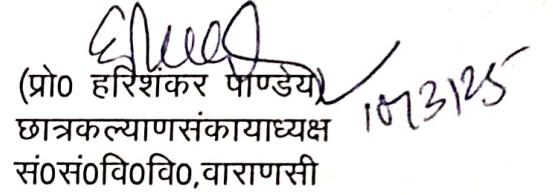 (प्रो0 हरिशंकर पाण्डेय)
10/3/25
छात्रकल्याणसंकायाध्यक्ष
सं0सं0वि0वि0,वाराणसी